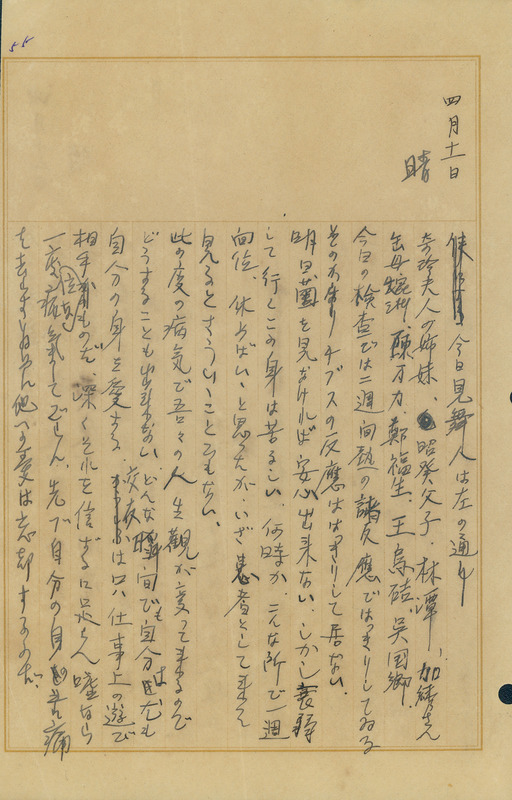 55
四月十一日
晴
今日見舞人は左の通り
奇玲夫人の姉妹、昭癸父子、林潭、加藤さん
岳母婉淑、陳万力、鄭福生、王烏硈、呉国郷
今日の検査では二週間頭の諸反應ではっきりしてゐる
そのかわりチブスの反應ははっきりして居ない。
明日菌を見なければ安心出来ない。しかし衰弱
して行くこの身は苦るしい。何時か、こんな所で一週
間位、休めばいいと思うたが、いざ患者として来て
見るとさういいことでもない。
此の度の病気で吾々の人生觀が変って来るので
どうすることも出来ない。どんな瞬間でも自分は尤も
自分の身を愛する。友は只、仕事上の遊び
相手のものだ。深くそれを信ずる
一度病気して、先で自分の身の苦痛
他への愛は忘却するのだ。